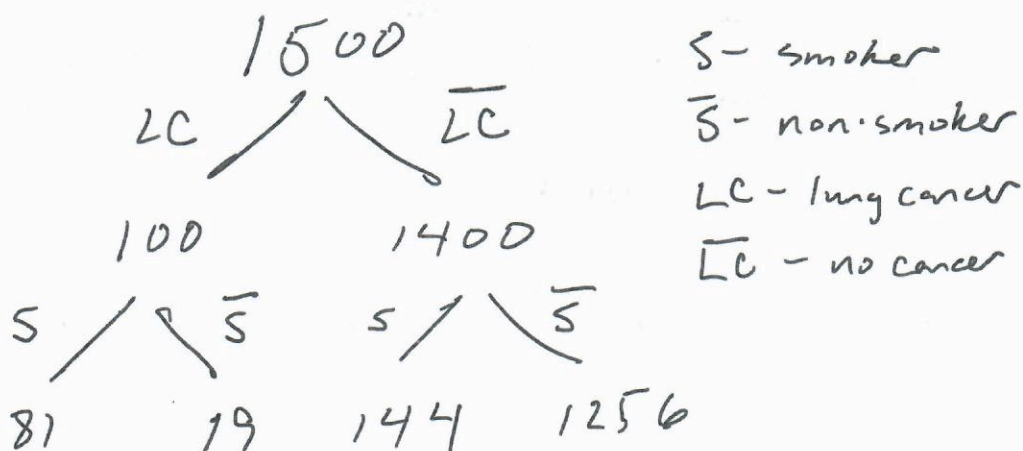 1500
LC L̅C̅
100 1400
S S̅ S S̅
81 19 144 1256
S - smoker
S̅ - non-smoker
LC - lung cancer
L̅C̅ - no cancer